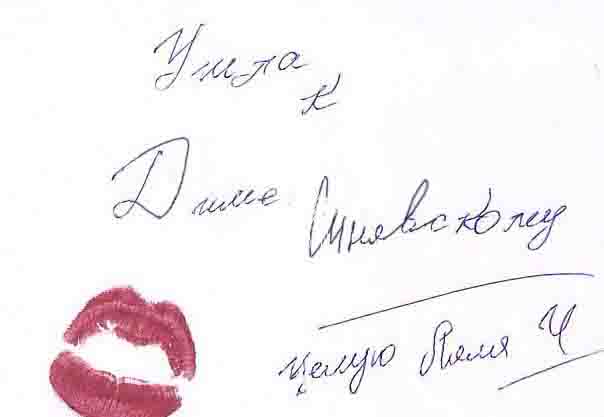 Ушла
к
Диме Синявскому
целую Ляля Ч